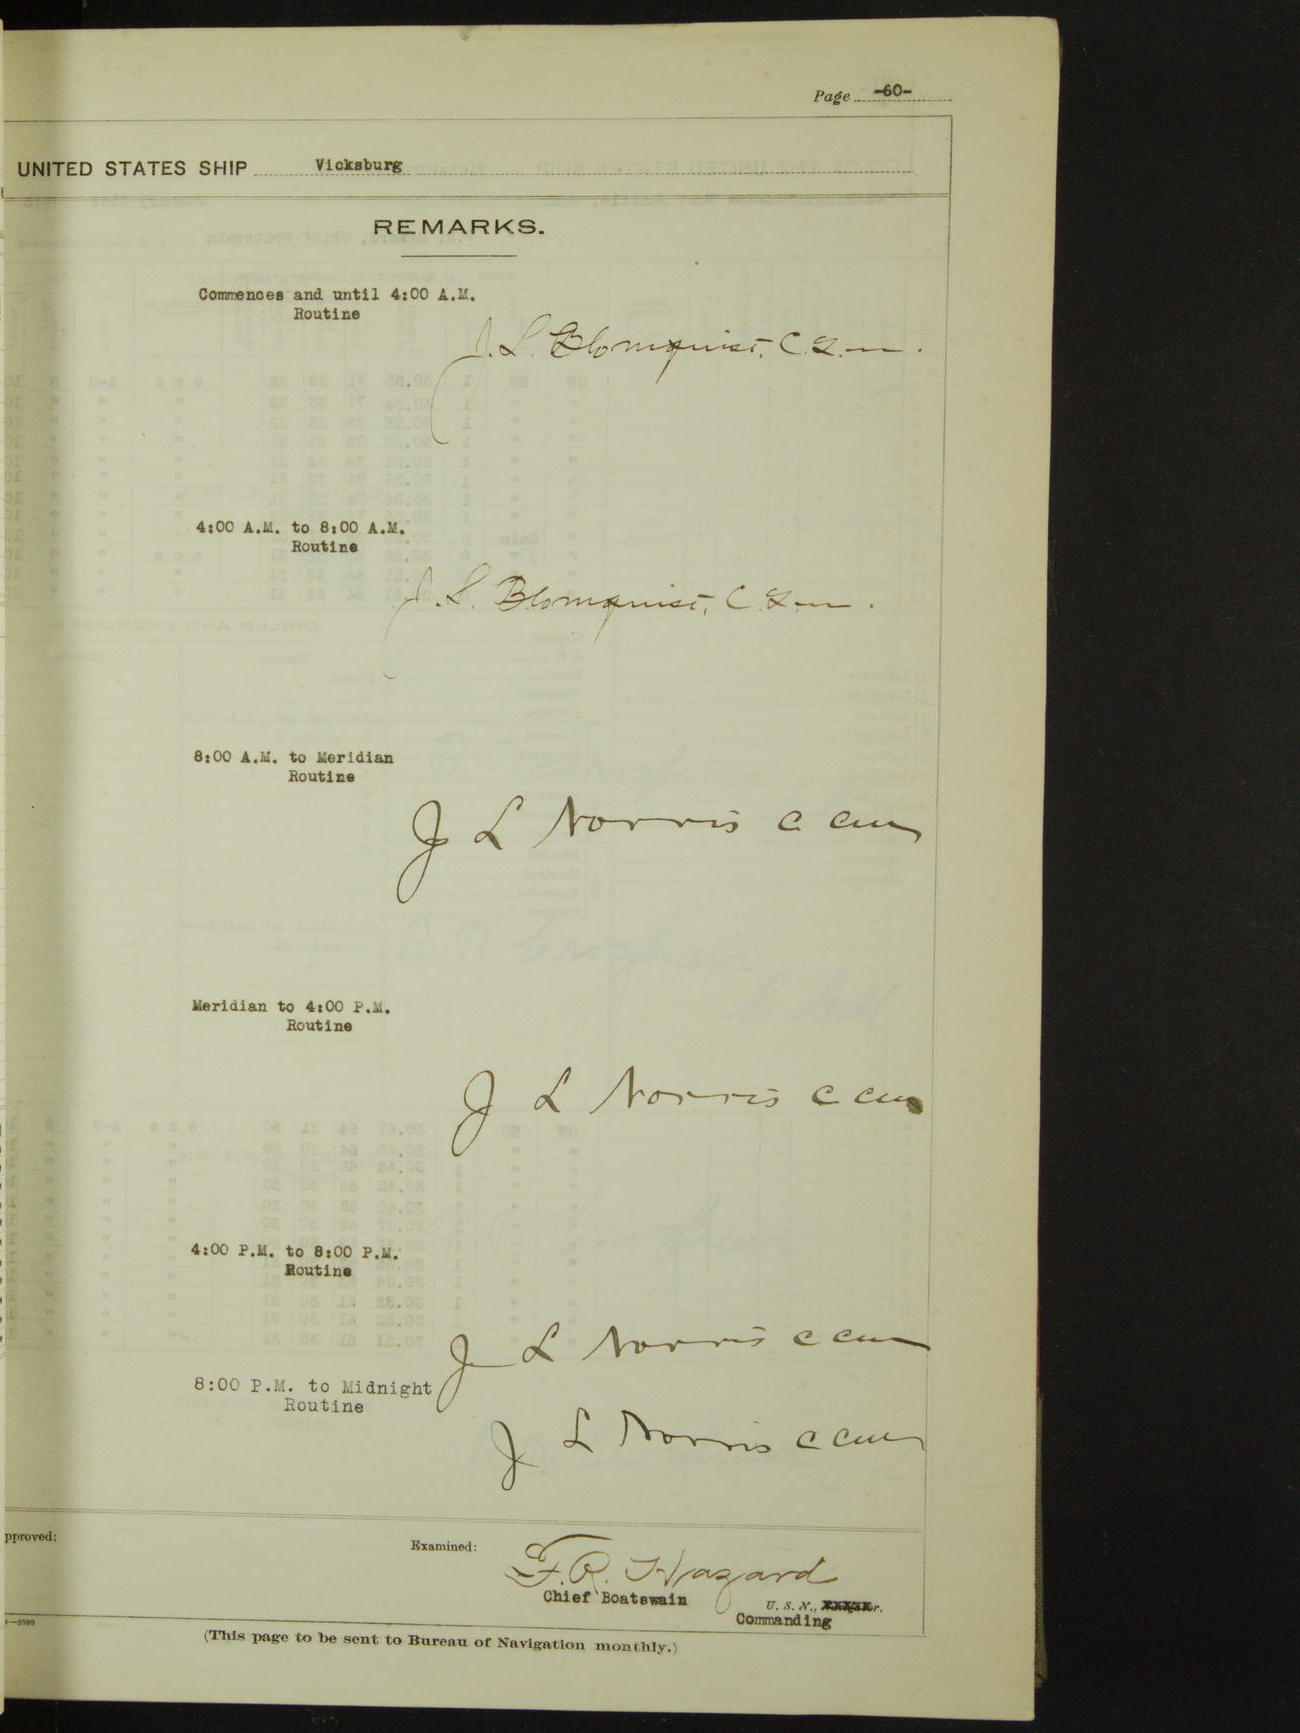 Page -60-
UNITED STATES SHIP Vicksburg
REMARKS.
Commences and until 4:00 A.M.
Routine
J. L. Blomquist, C.G.m.
4:00 A.M. to 8:00 A.M.
Routine
J. L. Blomquist, C.G.m.
8:00 A.M. to Meridian
Routine
J L Norris C CM
Meridian to 4:00 P.M.
Routine
J L Norris C CM
4:00 P.M. to 8:00 P.M.
Routine
J L Norris C CM
8:00 P.M. to Midnight
Routine
J L Norris C CM
pproved:
Examined:
F.R. Hazard
Chief Boatswain
U. S. N.,
Commanding
(This page to be sent to Bureau of Navigation monthly.)